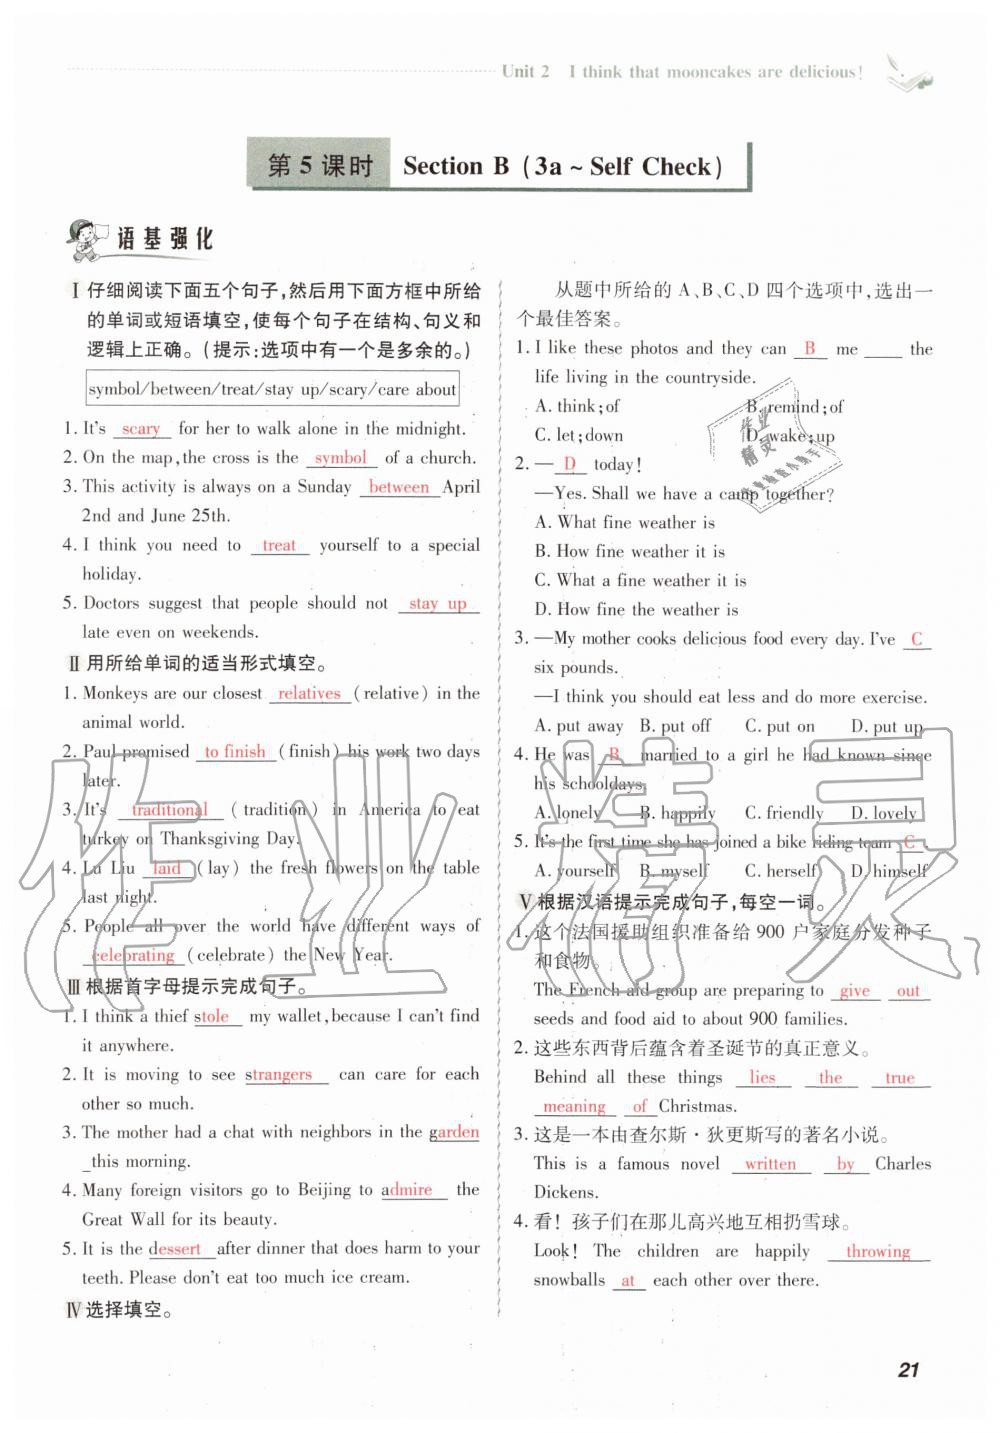 Unit 2 I think that mooncakes are delicious!
第 5 课时 Section B (3a ~ Self Check)
语基强化
Ⅰ 仔细阅读下面五个句子,然后用下面方框中所给
的单词或短语填空,使每个句子在结构、句义和
逻辑上正确。(提示:选项中有一个是多余的。)
symbol/between/treat/stay up/scary/care about
1. It's scary for her to walk alone in the midnight.
2. On the map, the cross is the symbol of a church.
3. This activity is always on a Sunday between April
2nd and June 25th.
4. I think you need to treat yourself to a special
holiday.
5. Doctors suggest that people should not stay up
late even on weekends.
Ⅱ 用所给单词的适当形式填空。
1. Monkeys are our closest relatives (relative) in the
animal world.
2. Paul promised to finish (finish) his work two days
later.
3. It's traditional (tradition) in America to eat
turkey on Thanksgiving Day.
4. Lu Liu laid (lay) the fresh flowers on the table
last night.
5. People all over the world have different ways of
celebrating (celebrate) the New Year.
Ⅲ 根据首字母提示完成句子。
1. I think a thief stole my wallet, because I can't find
it anywhere.
2. It is moving to see strangers can care for each
other so much.
3. The mother had a chat with neighbors in the garden
_this morning.
4. Many foreign visitors go to Beijing to admire the
Great Wall for its beauty.
5. It is the dessert after dinner that does harm to your
teeth. Please don't eat too much ice cream.
Ⅳ 选择填空。
从题中所给的 A、B、C、D 四个选项中,选出一
个最佳答案。
1. I like these photos and they can B me ____ the
life living in the countryside.
A. think;of B. remind;of
C. let;down D. wake;up
2. — D today!
—Yes. Shall we have a camp together?
A. What fine weather is
B. How fine weather it is
C. What a fine weather it is
D. How fine the weather is
3. —My mother cooks delicious food every day. I've C
six pounds.
—I think you should eat less and do more exercise.
A. put away B. put off C. put on D. put up
4. He was B married to a girl he had known since
his schooldays.
A. lonely B. happily C. friendly D. lovely
5. It's the first time she has joined a bike riding team C .
A. yourself B. myself C. herself D. himself
Ⅴ 根据汉语提示完成句子,每空一词。
1. 这个法国援助组织准备给 900 户家庭分发种子
和食物。
The French aid group are preparing to give out
seeds and food aid to about 900 families.
2. 这些东西背后蕴含着圣诞节的真正意义。
Behind all these things lies the true
meaning of Christmas.
3. 这是一本由查尔斯·狄更斯写的著名小说。
This is a famous novel written by Charles
Dickens.
4. 看!孩子们在那儿高兴地互相扔雪球。
Look! The children are happily throwing
snowballs at each other over there.
21
作业精灵
作业
精灵